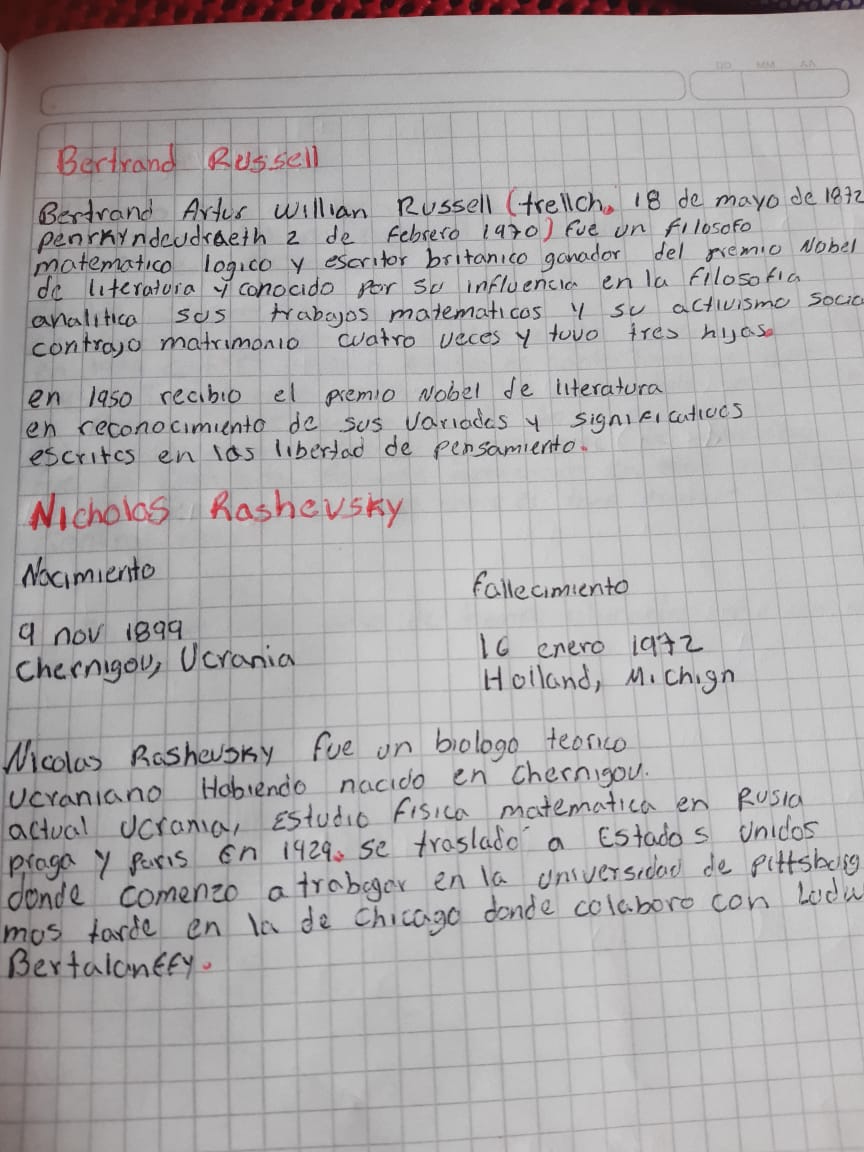 DD MM AA
Bertrand Russell
Bertrand Artur Willian Russell (trellch, 18 de mayo de 1872
penrhyndeudraeth 2 de febrero 1970) fue un filosofo
matematico logico y escritor britanico ganador del premio Nobel
de literatura y conocido por su influencia en la filosofia
analitica sus trabajos matematicos y su activismo socia
contrajo matrimonio cuatro veces y tuvo tres hijas.
en 1950 recibio el premio Nobel de literatura
en reconocimiento de sus variados y significativos
escritos en las libertad de pensamiento.
Nicholas Rashevsky
Nacimiento
fallecimiento
9 nov 1899
Chernigov, Ucrania
16 enero 1972
Holland, Michign
Nicolas Rashevsky fue un biologo teorico
ucraniano Habiendo nacido en chernigov.
actual ucrania, Estudio fisica matematica en Rusia
praga y paris En 1929. se traslado a Estados unidos
donde comenzo a trabagar en la universidad de pittsburg
mas tarde en la de chicago donde colaboro con Ludw
Bertalanffy.